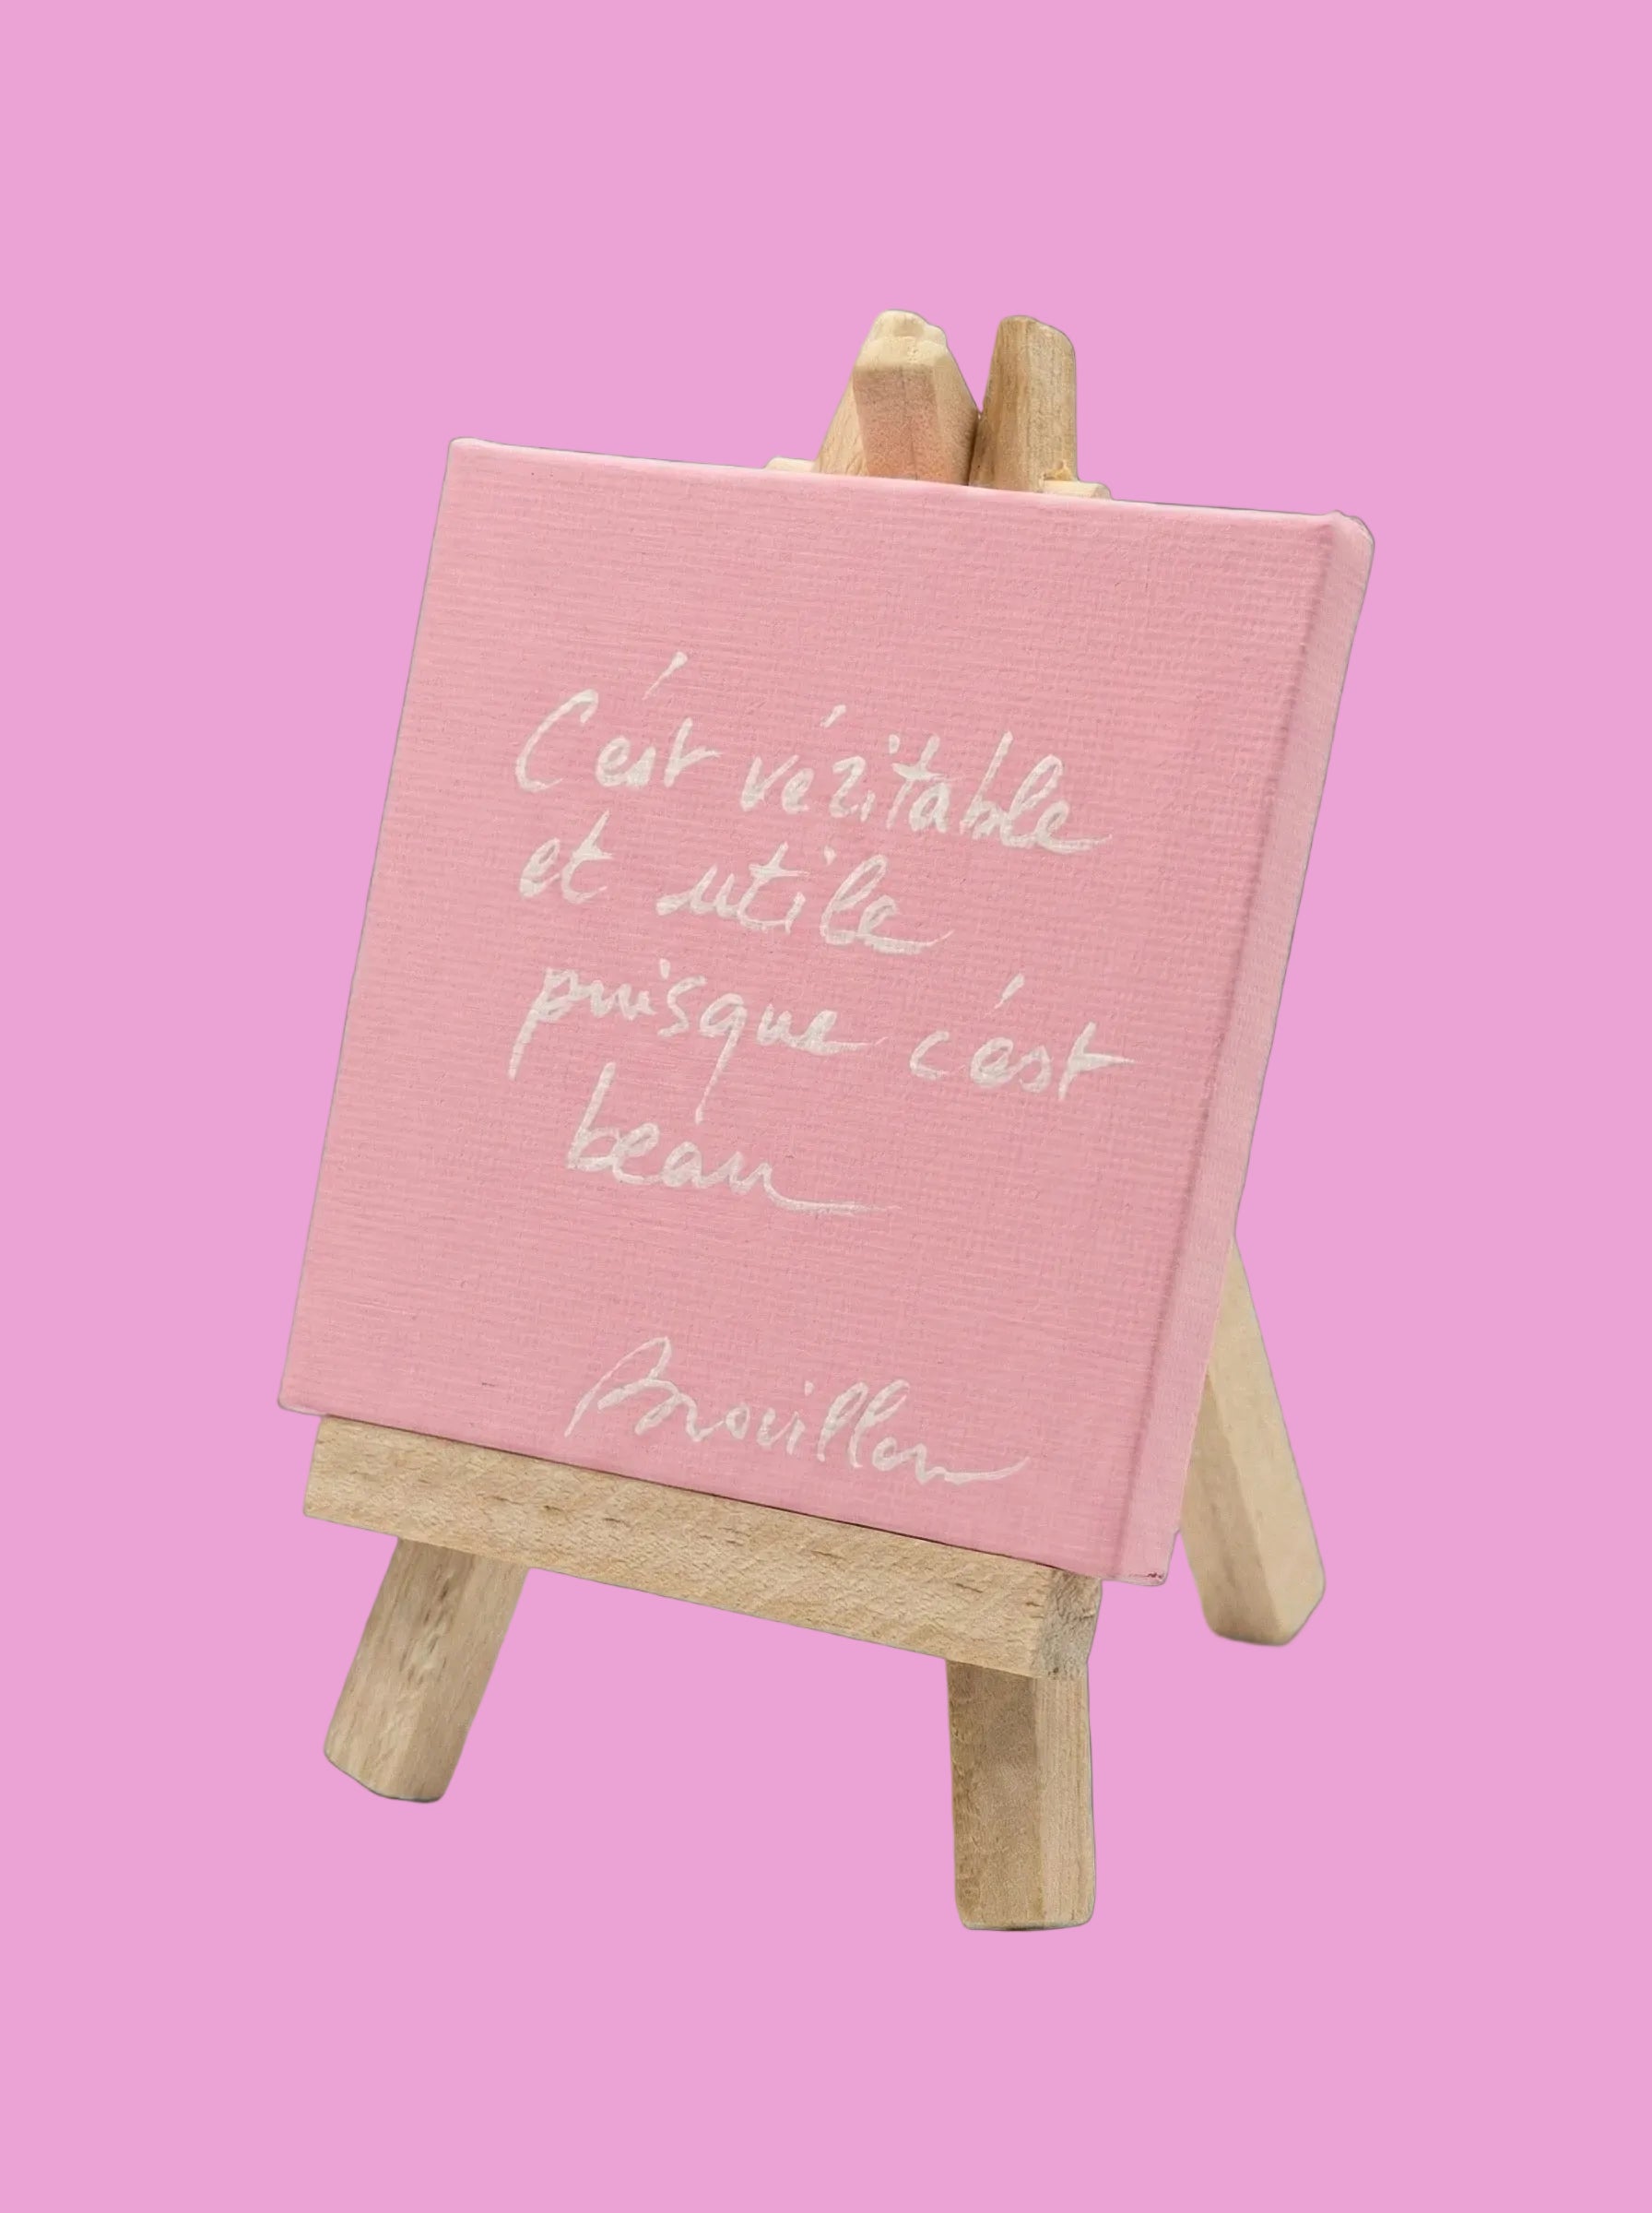 C'est véritable
et utile
puisque c'est
beau
Brouillon